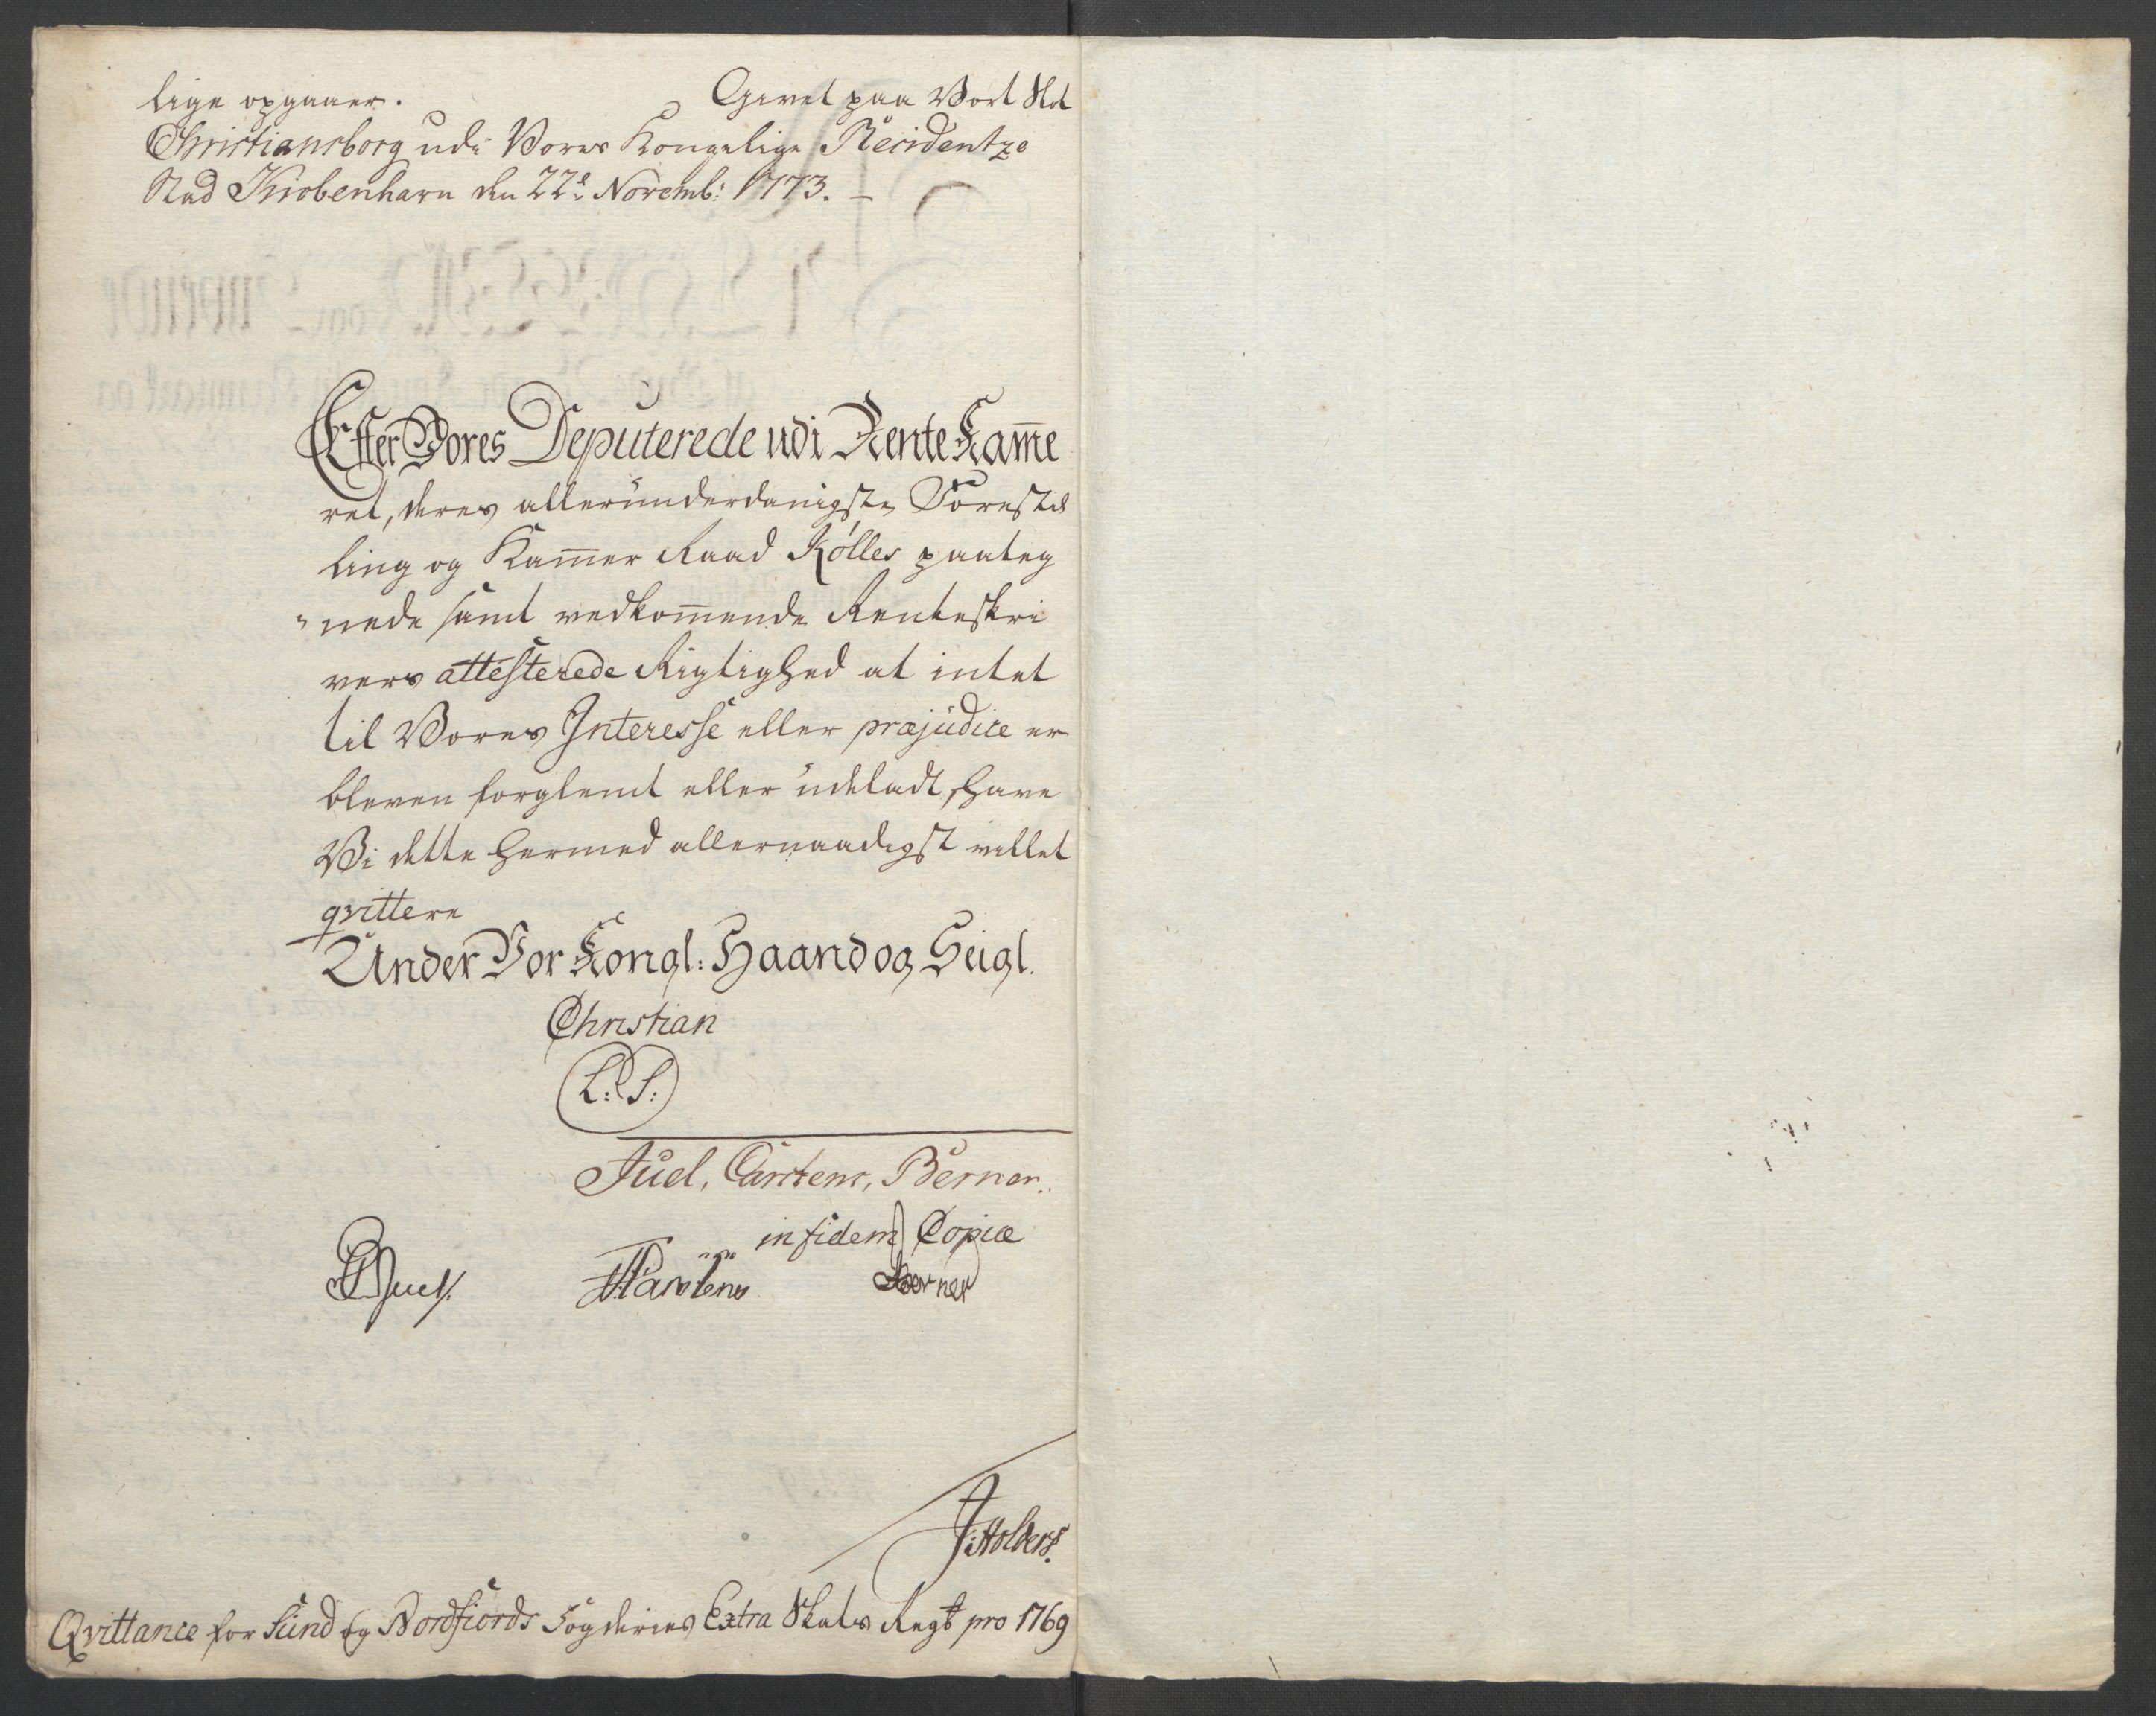 lige opgaaer. Givet paa Vort Slot
Christiansborg udi Vores Kongelige Residentze
Stad Kiøbenhavn den 22de Novemb: 1773. –
Efter Vores Deputerede udi Rente Kam̅e
ret, deres allerunderdanigste Forestil
ling og Kam̅er Raad Kølles paateg
nede samt vedkom̅ende Renteskri
vers attesterede Rigtighed at intet
til Vores Interesse eller præjudice er
bleven forglemt eller udeladt, have
Vi dette hermed allernaadigst villet
qvittere
Under Vor Kongl: Haand og Seigl.
Christian
L: S:
Juel, Carstens, Berner.
in fidem Copiæ
Juel. Carstens Berner
J: Holbers.
Qvittance for Sund og Nordfiords Fogderies Extra Skats Regsk pro 1769